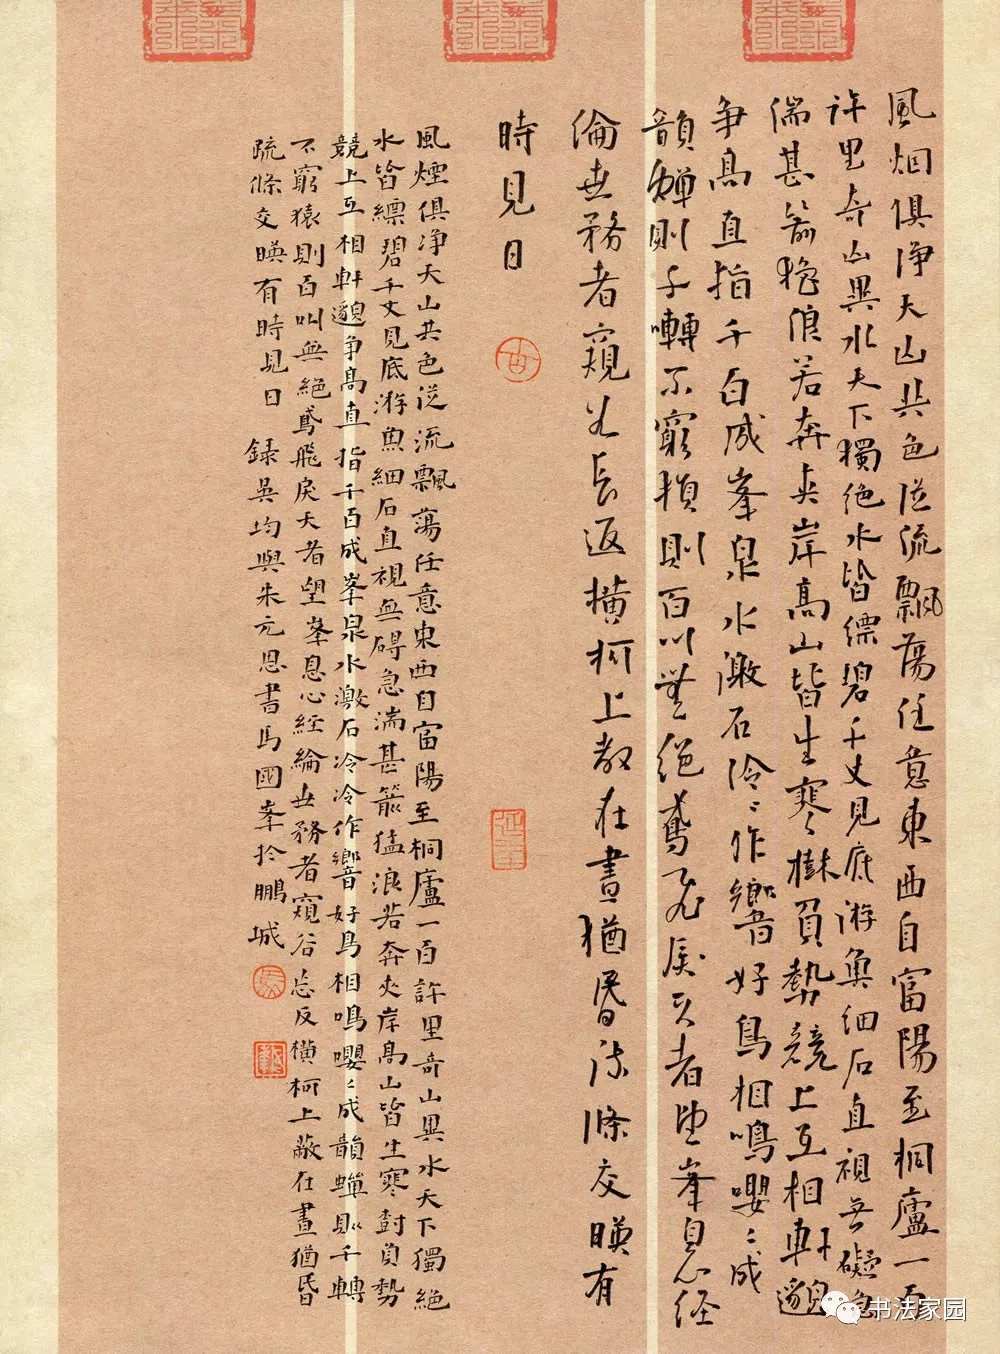 風烟俱净天山共色從流飄蕩任意東西自富陽至桐廬一百
許里奇山異水天下獨絶水皆縹碧千丈見底游魚細石直視無礙急
湍甚箭猛浪若奔夾岸高山皆生寒樹負勢競上互相軒邈
争高直指千百成峯泉水激石泠泠作響好鳥相鳴嚶嚶成
韻蟬則千囀不窮猿則百叫無絶鳶飛戾天者望峯息心經
綸世務者窺谷忘返橫柯上蔽在晝猶昏疏條交暎有
時見日
風煙俱净天山共色從流飄蕩任意東西自富陽至桐廬一百許里奇山異水天下獨絶
水皆縹碧千丈見底游魚細石直視無碍急湍甚箭猛浪若奔夾岸高山皆生寒樹負勢
競上互相軒邈争高直指千百成峯泉水激石泠泠作響好鳥相鳴嚶嚶成韻蟬則千轉
不窮猿則百叫無絶鳶飛戾天者望峯息心經綸世務者窺谷忘反橫柯上蔽在晝猶昏
疏條交暎有時見日 録吳均與朱元思書馬國峯於鵬城
书法家园